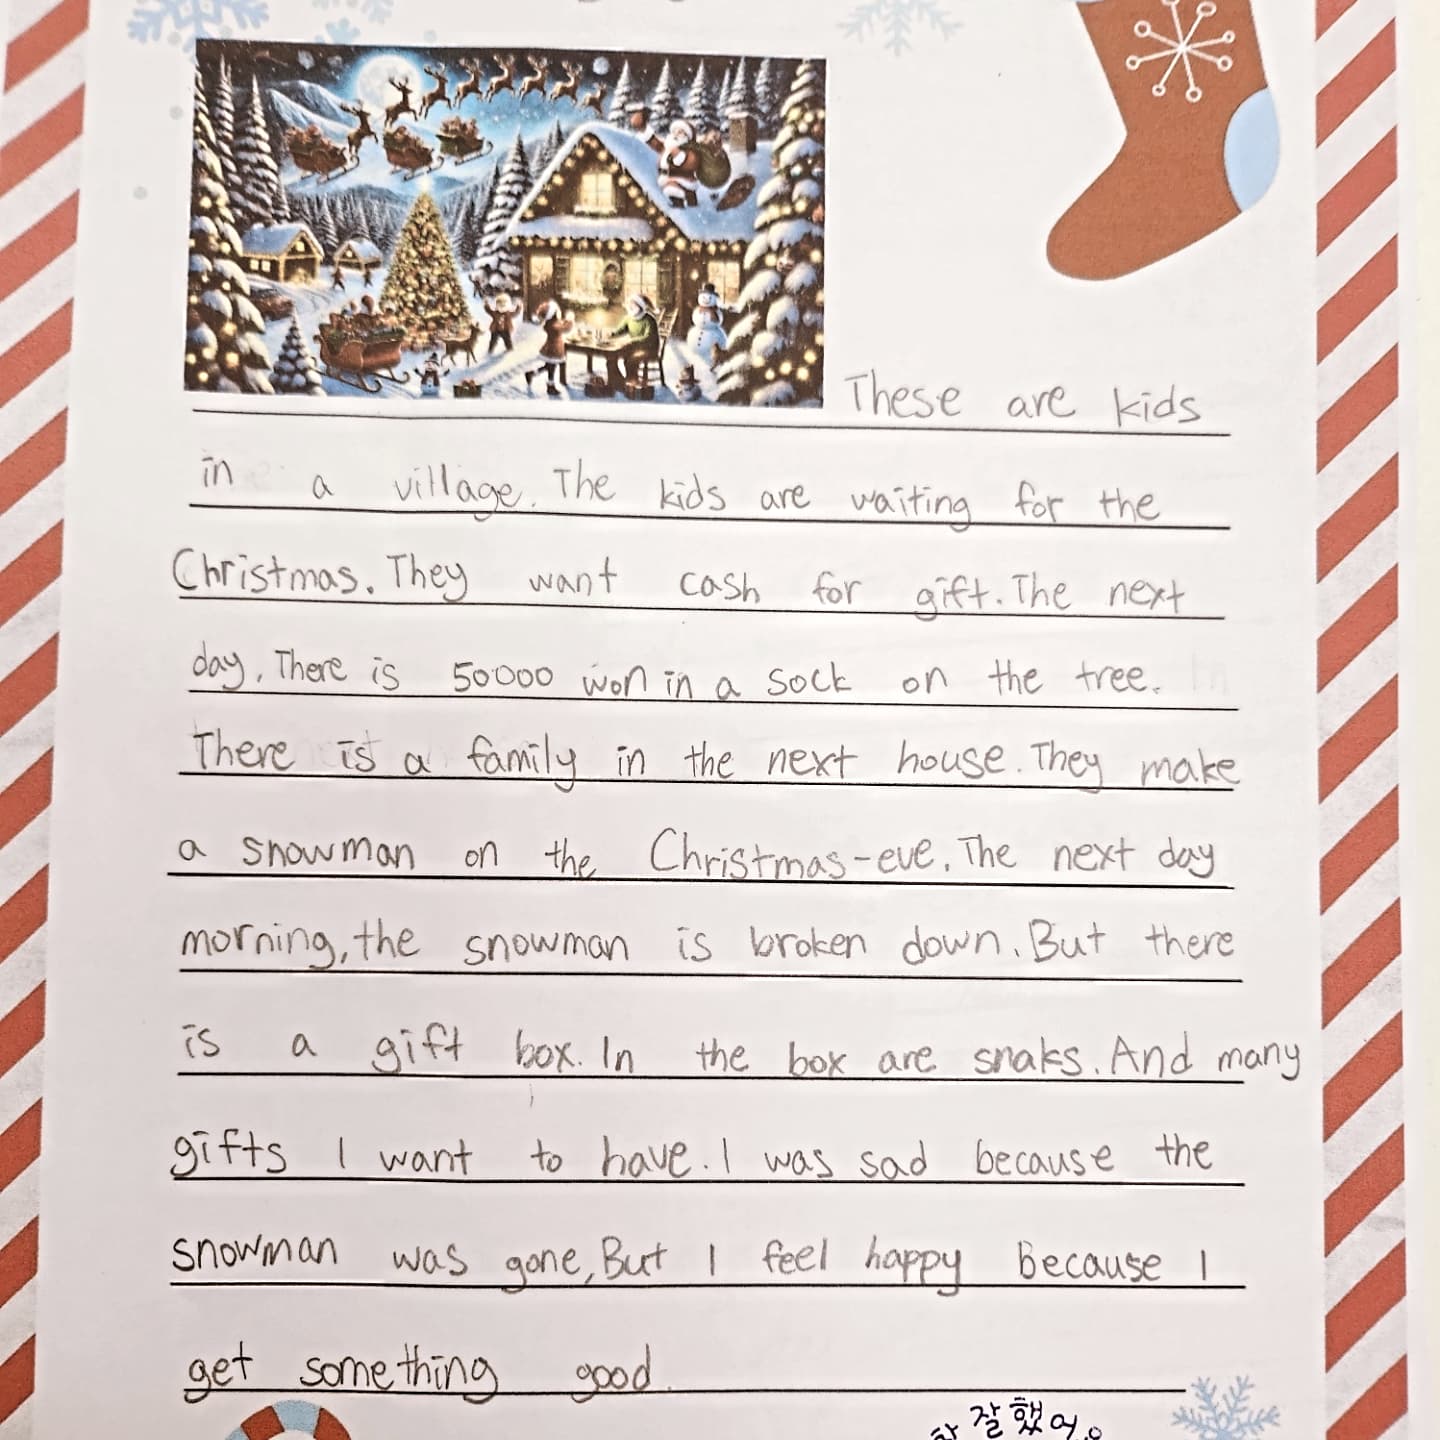 These are kids
in a village. The kids are waiting for the
Christmas. They want cash for gift. The next
day, There is 50000 won in a sock on the tree.
There is a family in the next house. They make
a snowman on the Christmas-eve. The next day
morning, the snowman is broken down. But there
is a gift box. In the box are snaks. And many
gifts I want to have. I was sad because the
snowman was gone, But I feel happy because I
get something good.
잘했어.